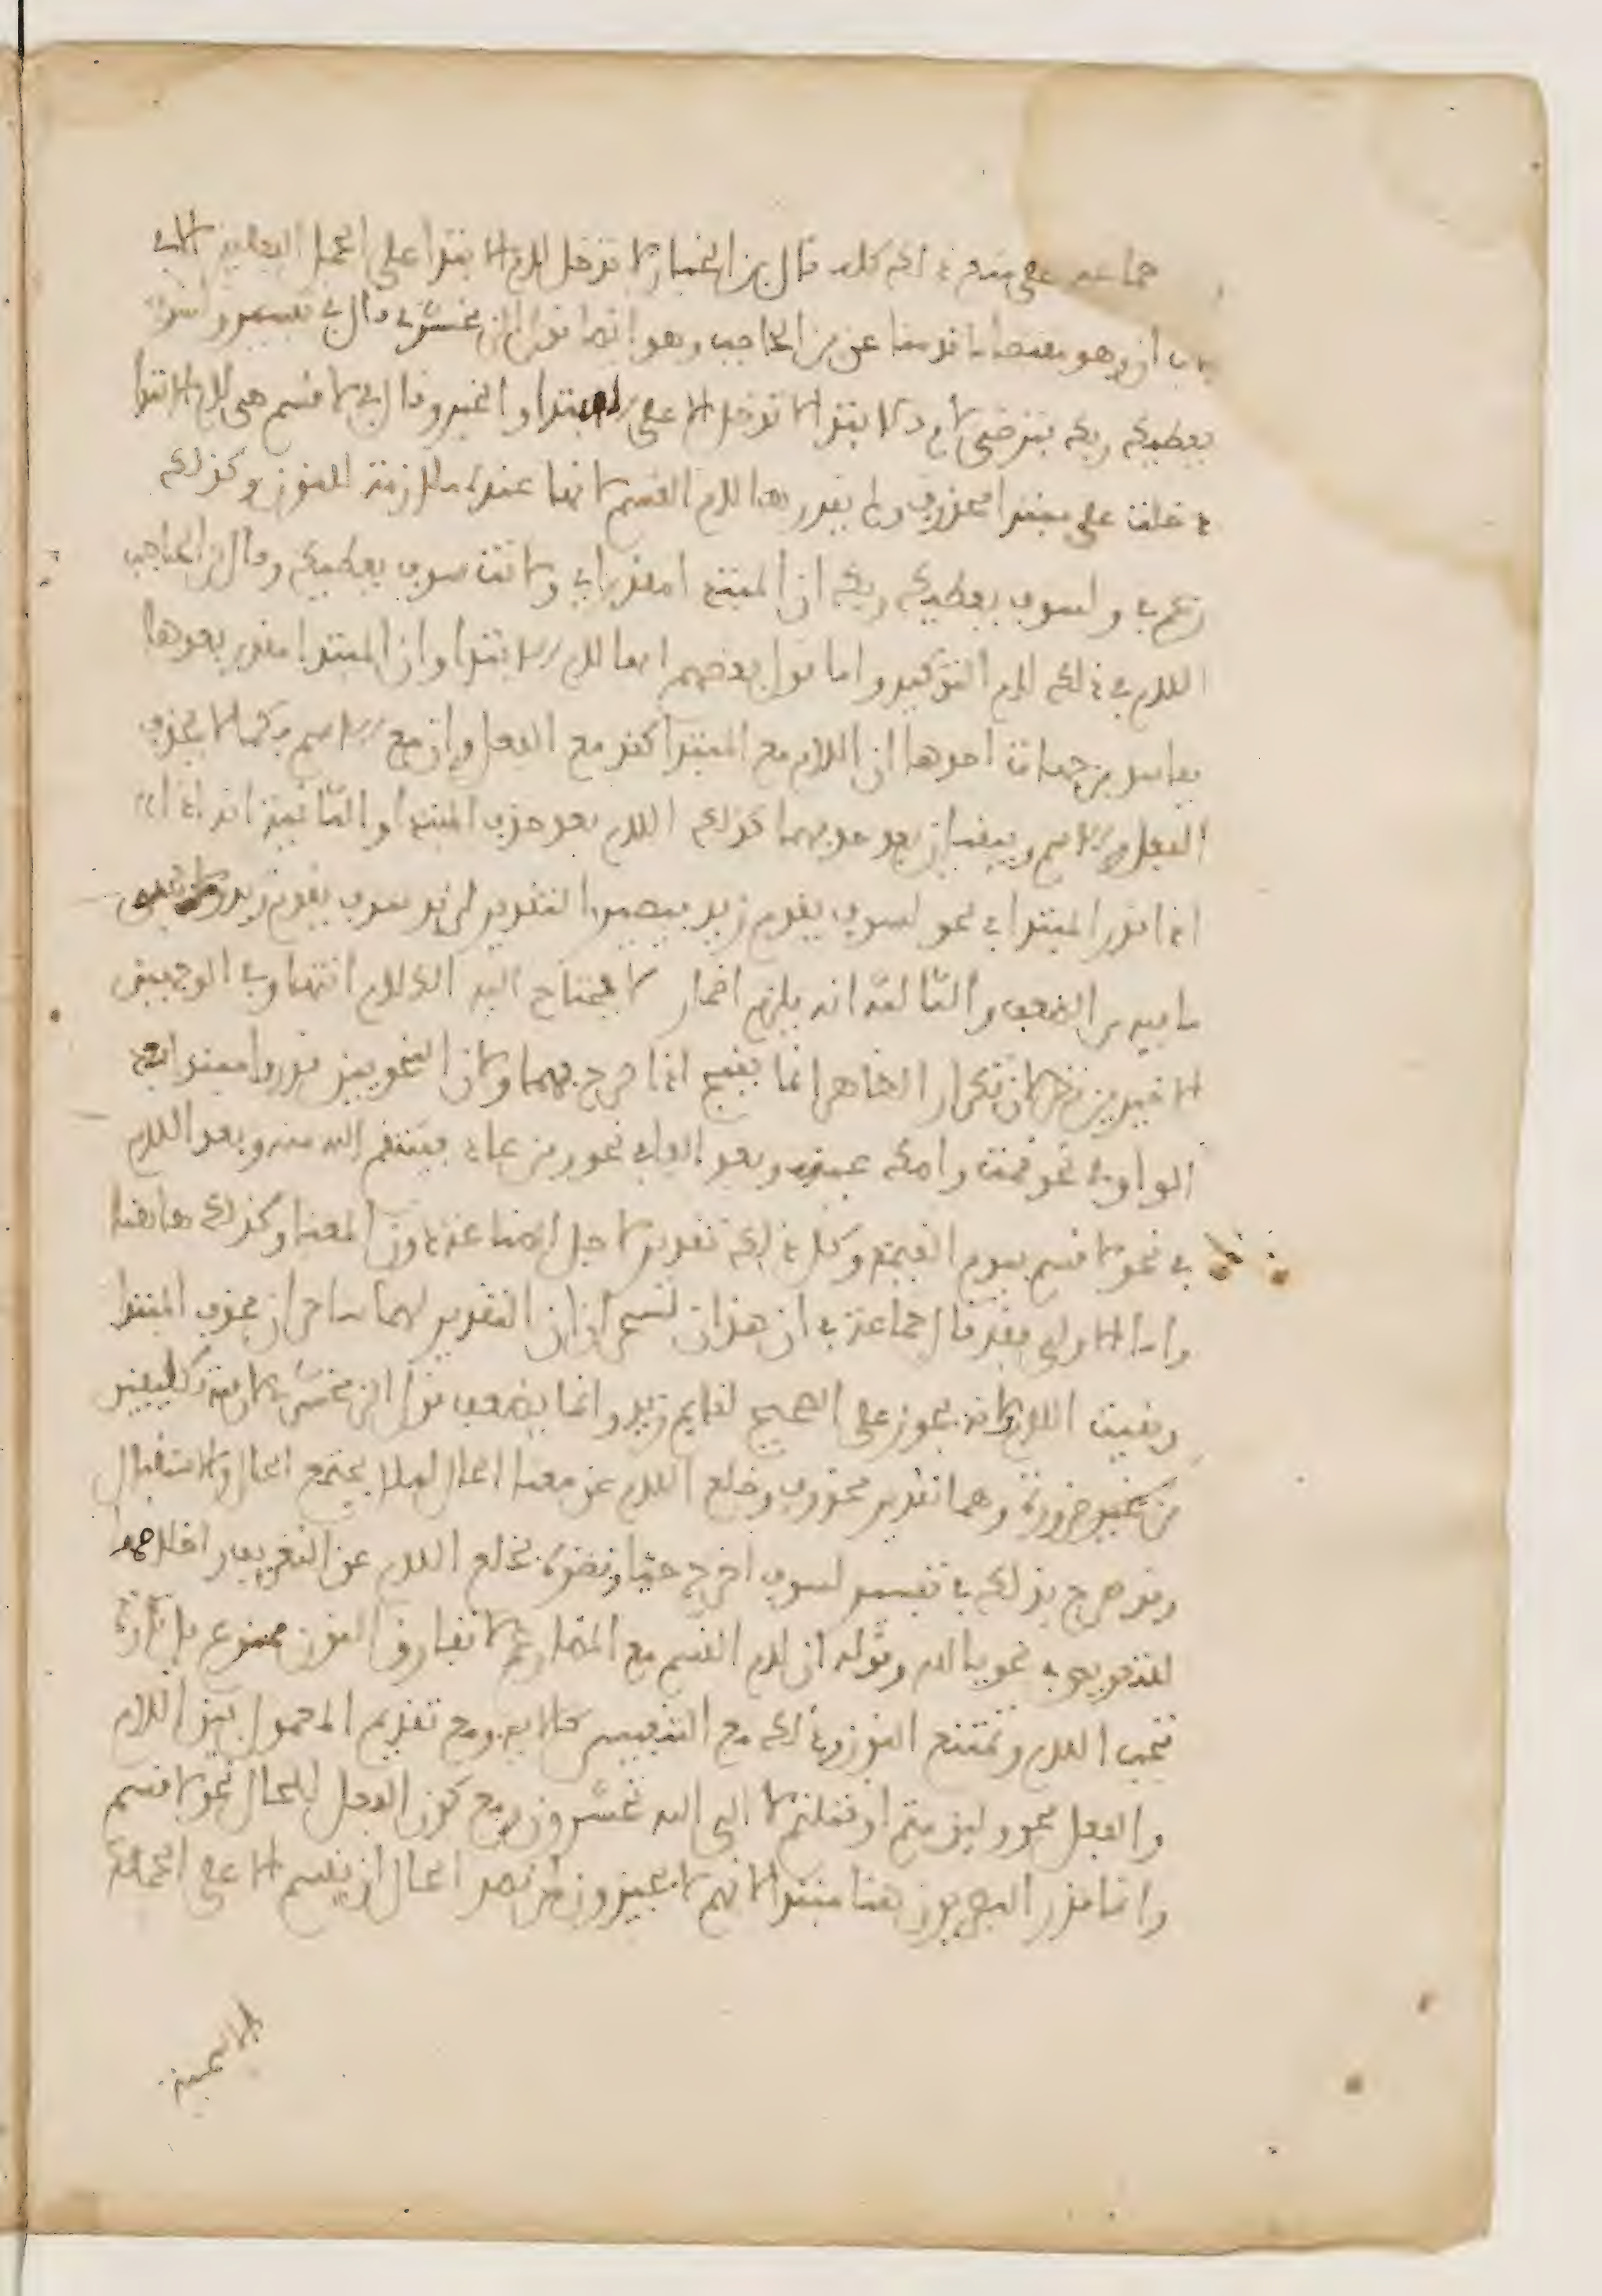 جماعة على منع ذلك كله قال بن الخباز لا تدخل لام الابتدا على الجمل الفعلية الا في
باب ان وهو مقتضى ما قدمنا عن بن الحاجب وهو ايضا قول الزمخشري قال في تفسير ولسوف
يعطيك ربك فترضى لام الابتدا لا تدخل الا على المبتدا والخبر وقال في لا قسم هي لام الابتدا
دخلت على مبتدا محذوف ولم يقدرها لام القسم لانها عنده ملازمة للنون وكذلك
زعم في ولسوف يعطيك ربك ان المبتدا مقدر اي ولانت سوف يعطيك وقال بن الحاجب
اللام في ذلك لام التوكيد واما قول بعضهم انها لام الابتدا وان المبتدا مقدر بعدها
ففاسد من جهات احدها ان اللام مع المبتدا كقد مع الفعل وان مع الاسم فكما لا يحذف
الفعل والاسم ويبقيان بعد حذفهما كذلك اللام بعد حذف المبتدا والثانية انه اذا
اذا قدر المبتدا في نحو لسوف يقوم زيد فيصير التقدير لزيد سوف يقوم زيد ولا يخفى
ما فيه من الضعف والثالثة انه يلزم اضمار لا يحتاج اليه الكلام انتهى وفي الوجهين
الاخيرين نظر لان تكرار الظاهر انما يقبح اذا صرح بهما ولان النحويين قدروا مبتدا بعد
الواو في نحو قمت واصك عينه وبعد الفاء في نحو ومن عاد فينتقم الله منه وبعد اللام
في نحو لا قسم بيوم القيمة وكل ذلك تقدير لاجل الصناعة دون المعنى وكذلك هاهنا
واما الاولى فقد قال جماعة في ان هذان لسحران ان التقدير لهما ساحران فحذف المبتدا
وبقيت اللام ولانه يجوز على الصحيح لقايم زيد وانما يضعف قول الزمخشري لان فيه تكلفين
من غير ضرورة وهما تقدير محذوف وخلع اللام عن معنى الحال ليلا يجتمع الحال والاستقبال
وقد صرح بذلك في تفسير لسوف اخرج حيا ونظره بخلع اللام عن التعريف واخلاصها
للتعويض في نحو يا الله وقوله ان لام القسم مع المضارع لا تفارق النون ممنوع بل تارة
تجب اللام وتمتنع النون وذلك مع التنفيس كالاية ومع تقديم المعمول بين اللام
والفعل نحو وليز متم او قتلتم لا الى الله تحشرون ومع كون الفعل للحال نحو لا قسم
وانما قدر البصريون هنا مبتدا لانهم لا يجيزون لمن قصد الحال ان يقسم الا على الجملة
الاسمية